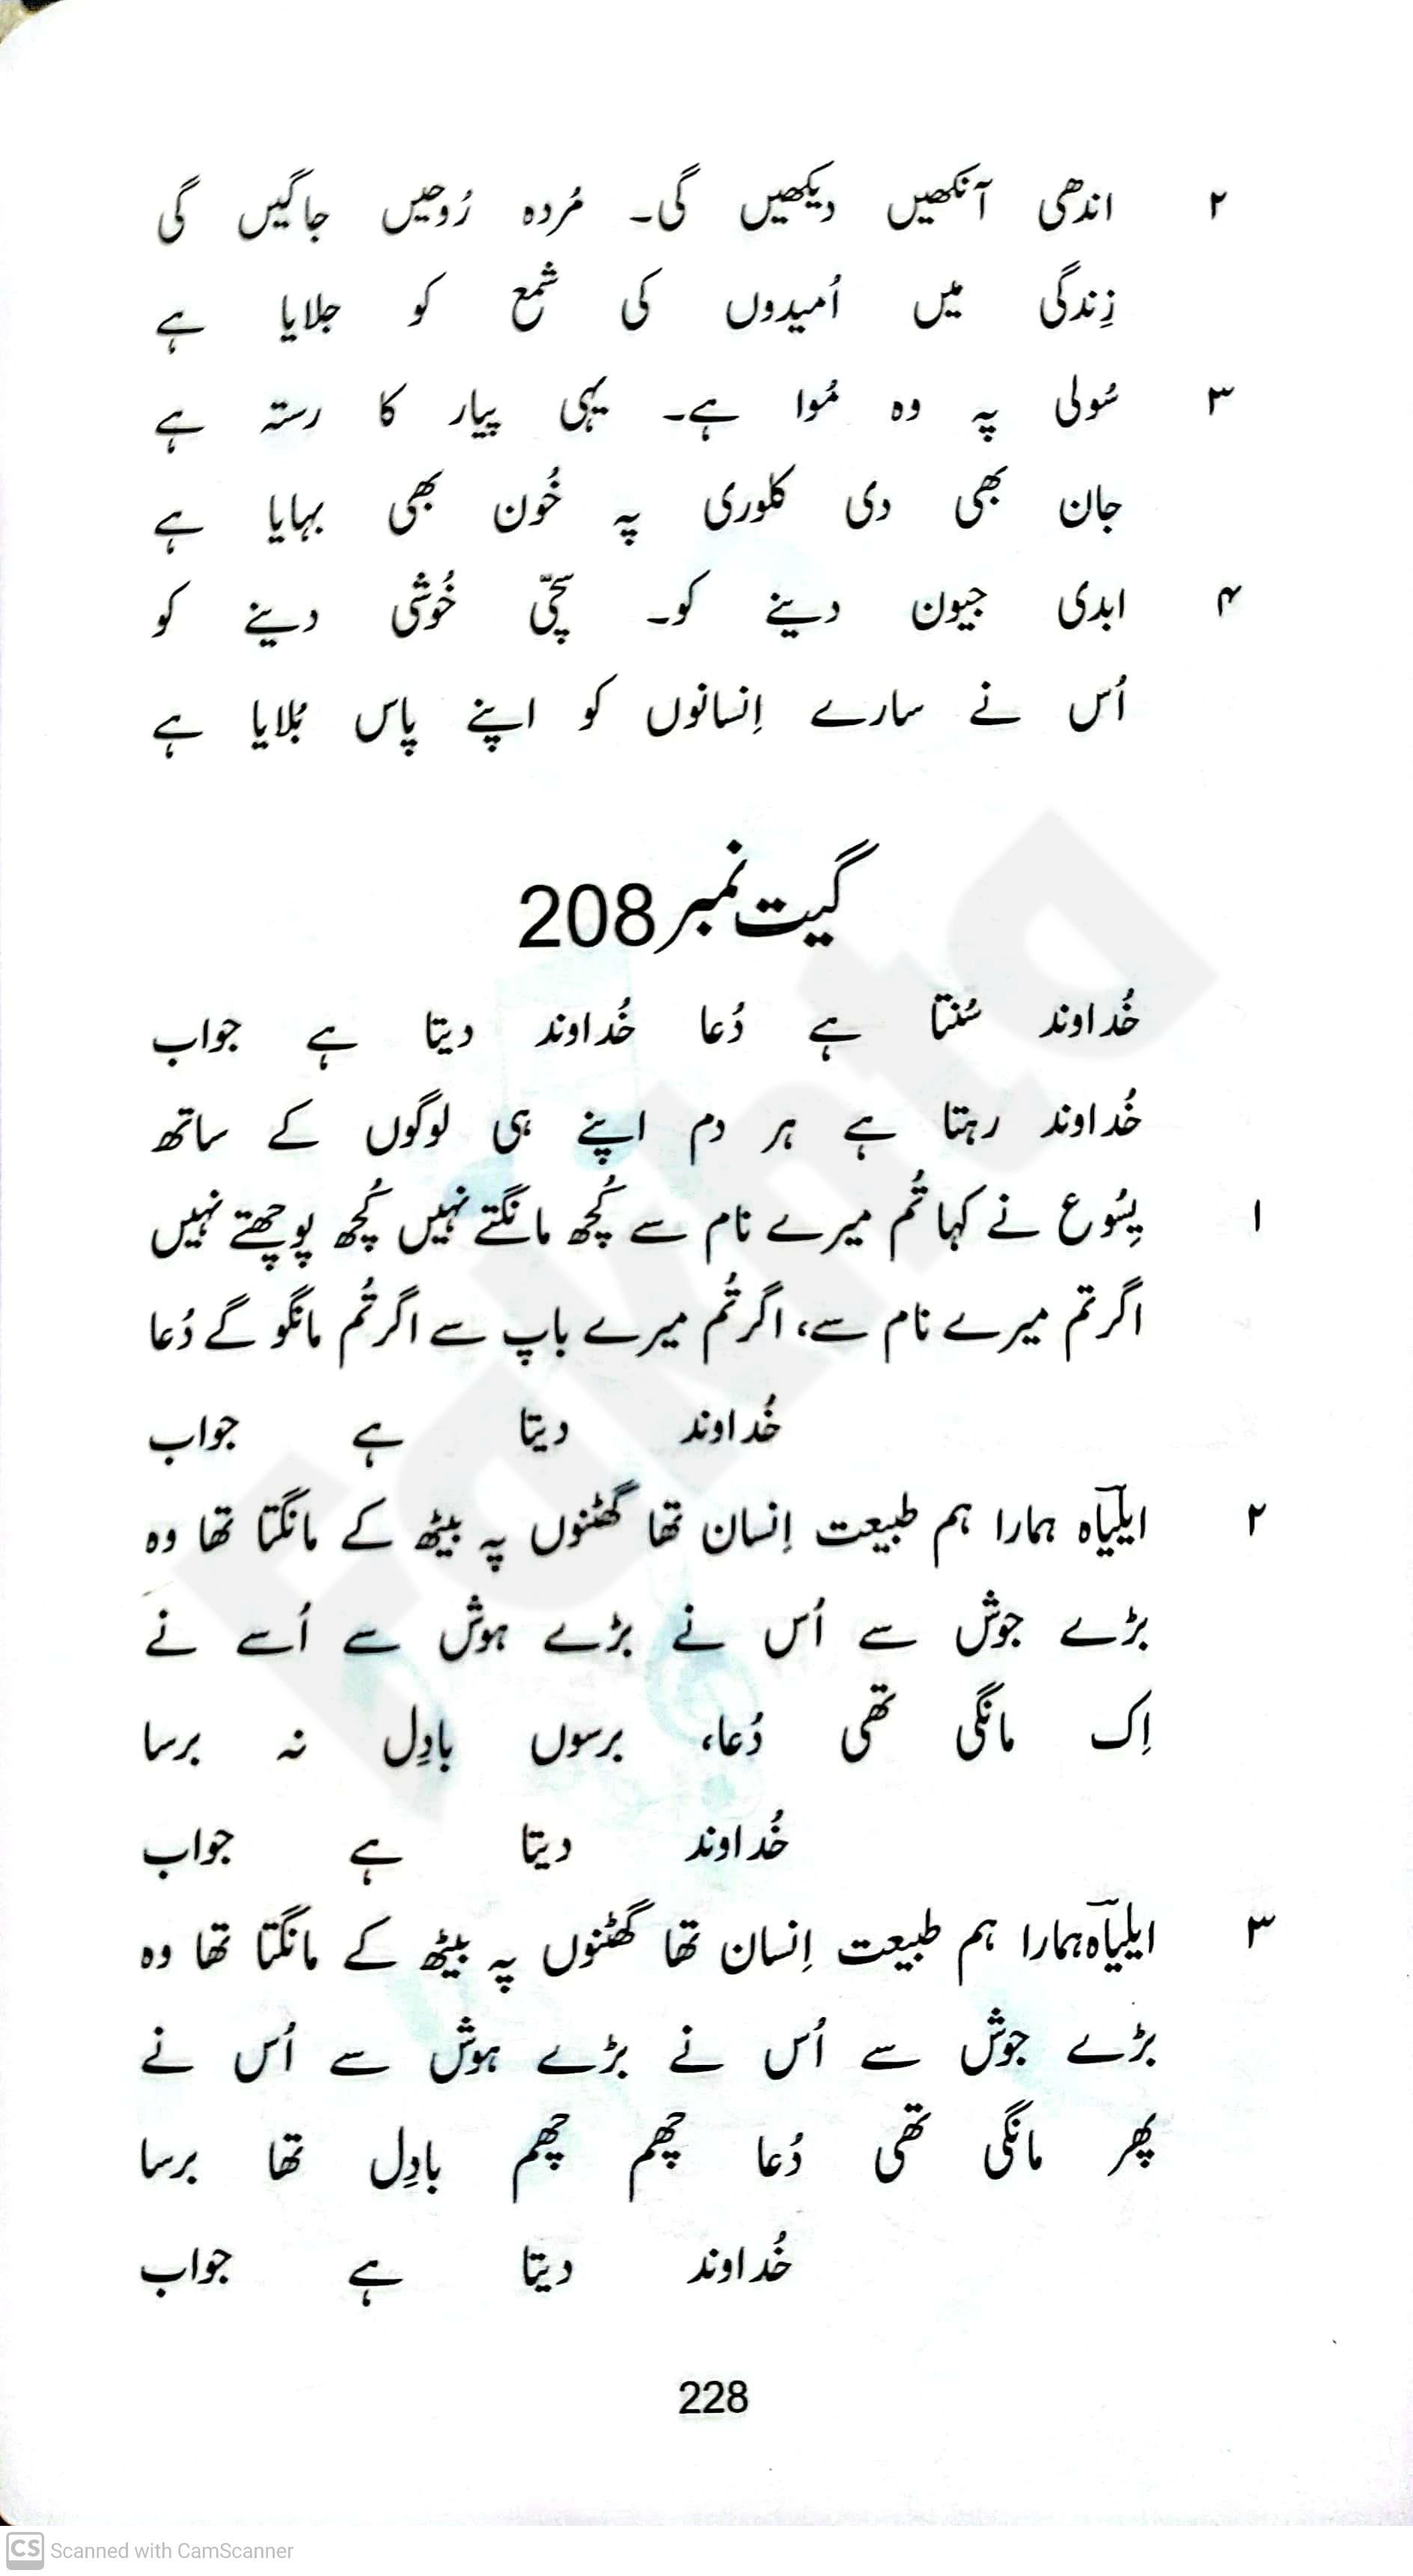 ۲ اندھی آنکھیں دیکھیں گی۔ مُردہ رُوحیں جاگیں گی
زِندگی میں اُمیدوں کی شمع کو جلایا ہے
۳ سُولی پہ وہ مُوا ہے۔ یہی پیار کا رستہ ہے
جان بھی دی کلوری پہ خُون بھی بہایا ہے
۴ ابدی جیون دینے کو۔ سچّی خُوشی دینے کو
اُس نے سارے اِنسانوں کو اپنے پاس بُلایا ہے
گیت نمبر 208
خُداوند سُنتا ہے دُعا خُداوند دیتا ہے جواب
خُداوند رہتا ہے ہر دم اپنے ہی لوگوں کے ساتھ
۱ یِسُوع نے کہا تُم میرے نام سے کُچھ مانگتے نہیں کُچھ پوچھتے نہیں
اگر تم میرے نام سے، اگر تُم میرے باپ سے اگر تُم مانگو گے دُعا
خُداوند دیتا ہے جواب
۲ ایلیاؔہ ہمارا ہم طبیعت اِنسان تھا گھٹنوں پہ بیٹھ کے مانگتا تھا وہ
بڑے جوش سے اُس نے بڑے ہوش سے اُسے نے
اِک مانگی تھی دُعا، برسوں بادِل نہ برسا
خُداوند دیتا ہے جواب
۳ ایلیاؔہ ہمارا ہم طبیعت اِنسان تھا گھٹنوں پہ بیٹھ کے مانگتا تھا وہ
بڑے جوش سے اُس نے بڑے ہوش سے اُس نے
پھر مانگی تھی دُعا چھم چھم بادِل تھا برسا
خُداوند دیتا ہے جواب
228
CS Scanned with CamScanner
Fakhta